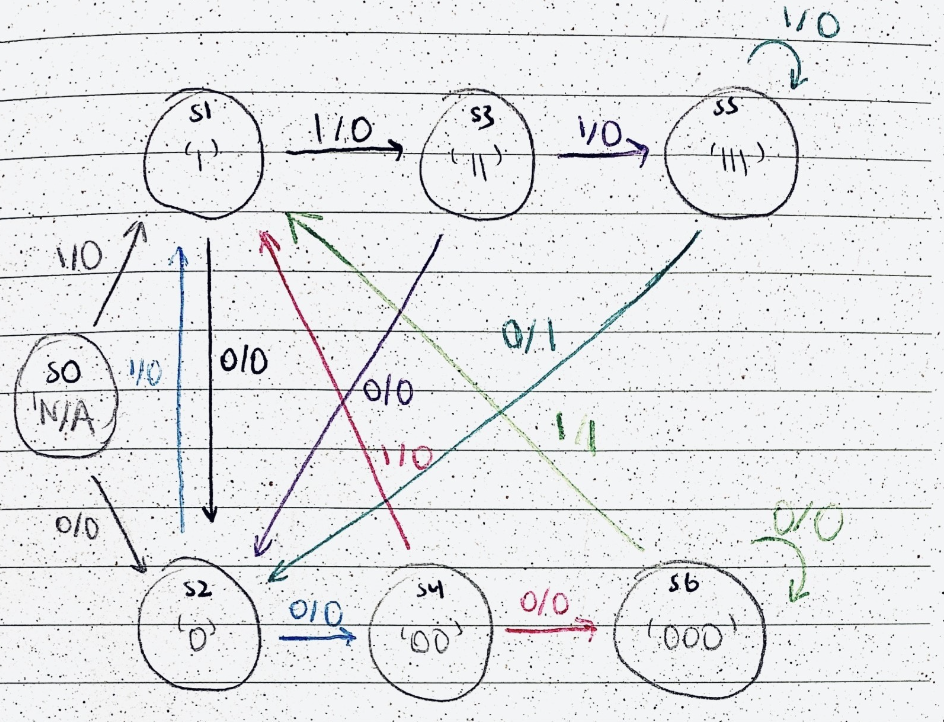 1/0
S1
'1'
1/0
S3
'11'
1/0
S5
'111'
1/0
S0
'N/A'
1/0
0/0
0/0
1/0
0/1
1/1
0/0
0/0
S2
'0'
0/0
S4
'00'
0/0
S6
'000'